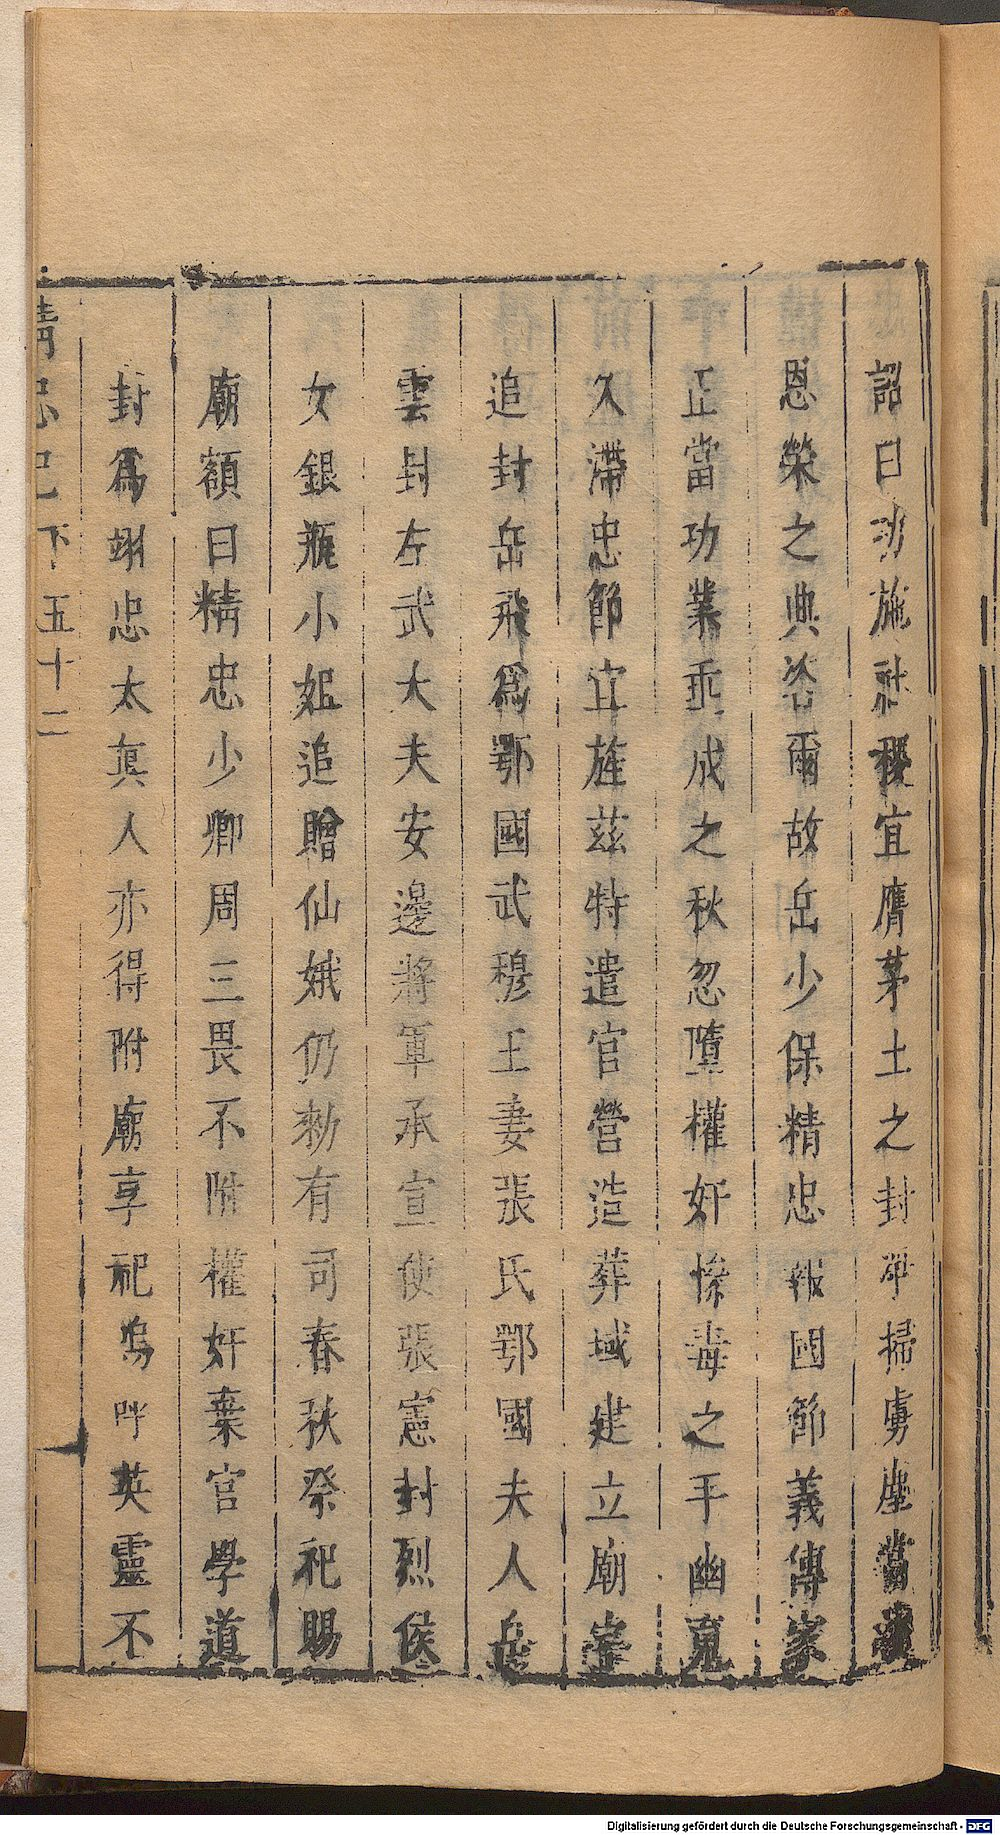 詔曰功施社稷宜膺茅土之封平掃虜塵當
恩榮之典咨爾故岳少保精忠報國節義傳家
正當功業垂成之秋忽墮權奸慘毒之手幽冤
久滯忠節宜旌茲特遣官營造葬域建立廟宇
追封岳飛爲鄂國武穆王妻張氏鄂國夫人岳
雲封左武大夫安邊將軍承宣使張憲封烈侯
女銀瓶小姐追贈仙娥仍勑有司春秋祭祀賜
廟額曰精忠少卿周三畏不附權奸棄官學道
封爲翊忠太真人亦得附廟享祀嗚呼英靈不
精忠記下五十二
Digitalisierung gefördert durch die Deutsche Forschungsgemeinschaft - DFG